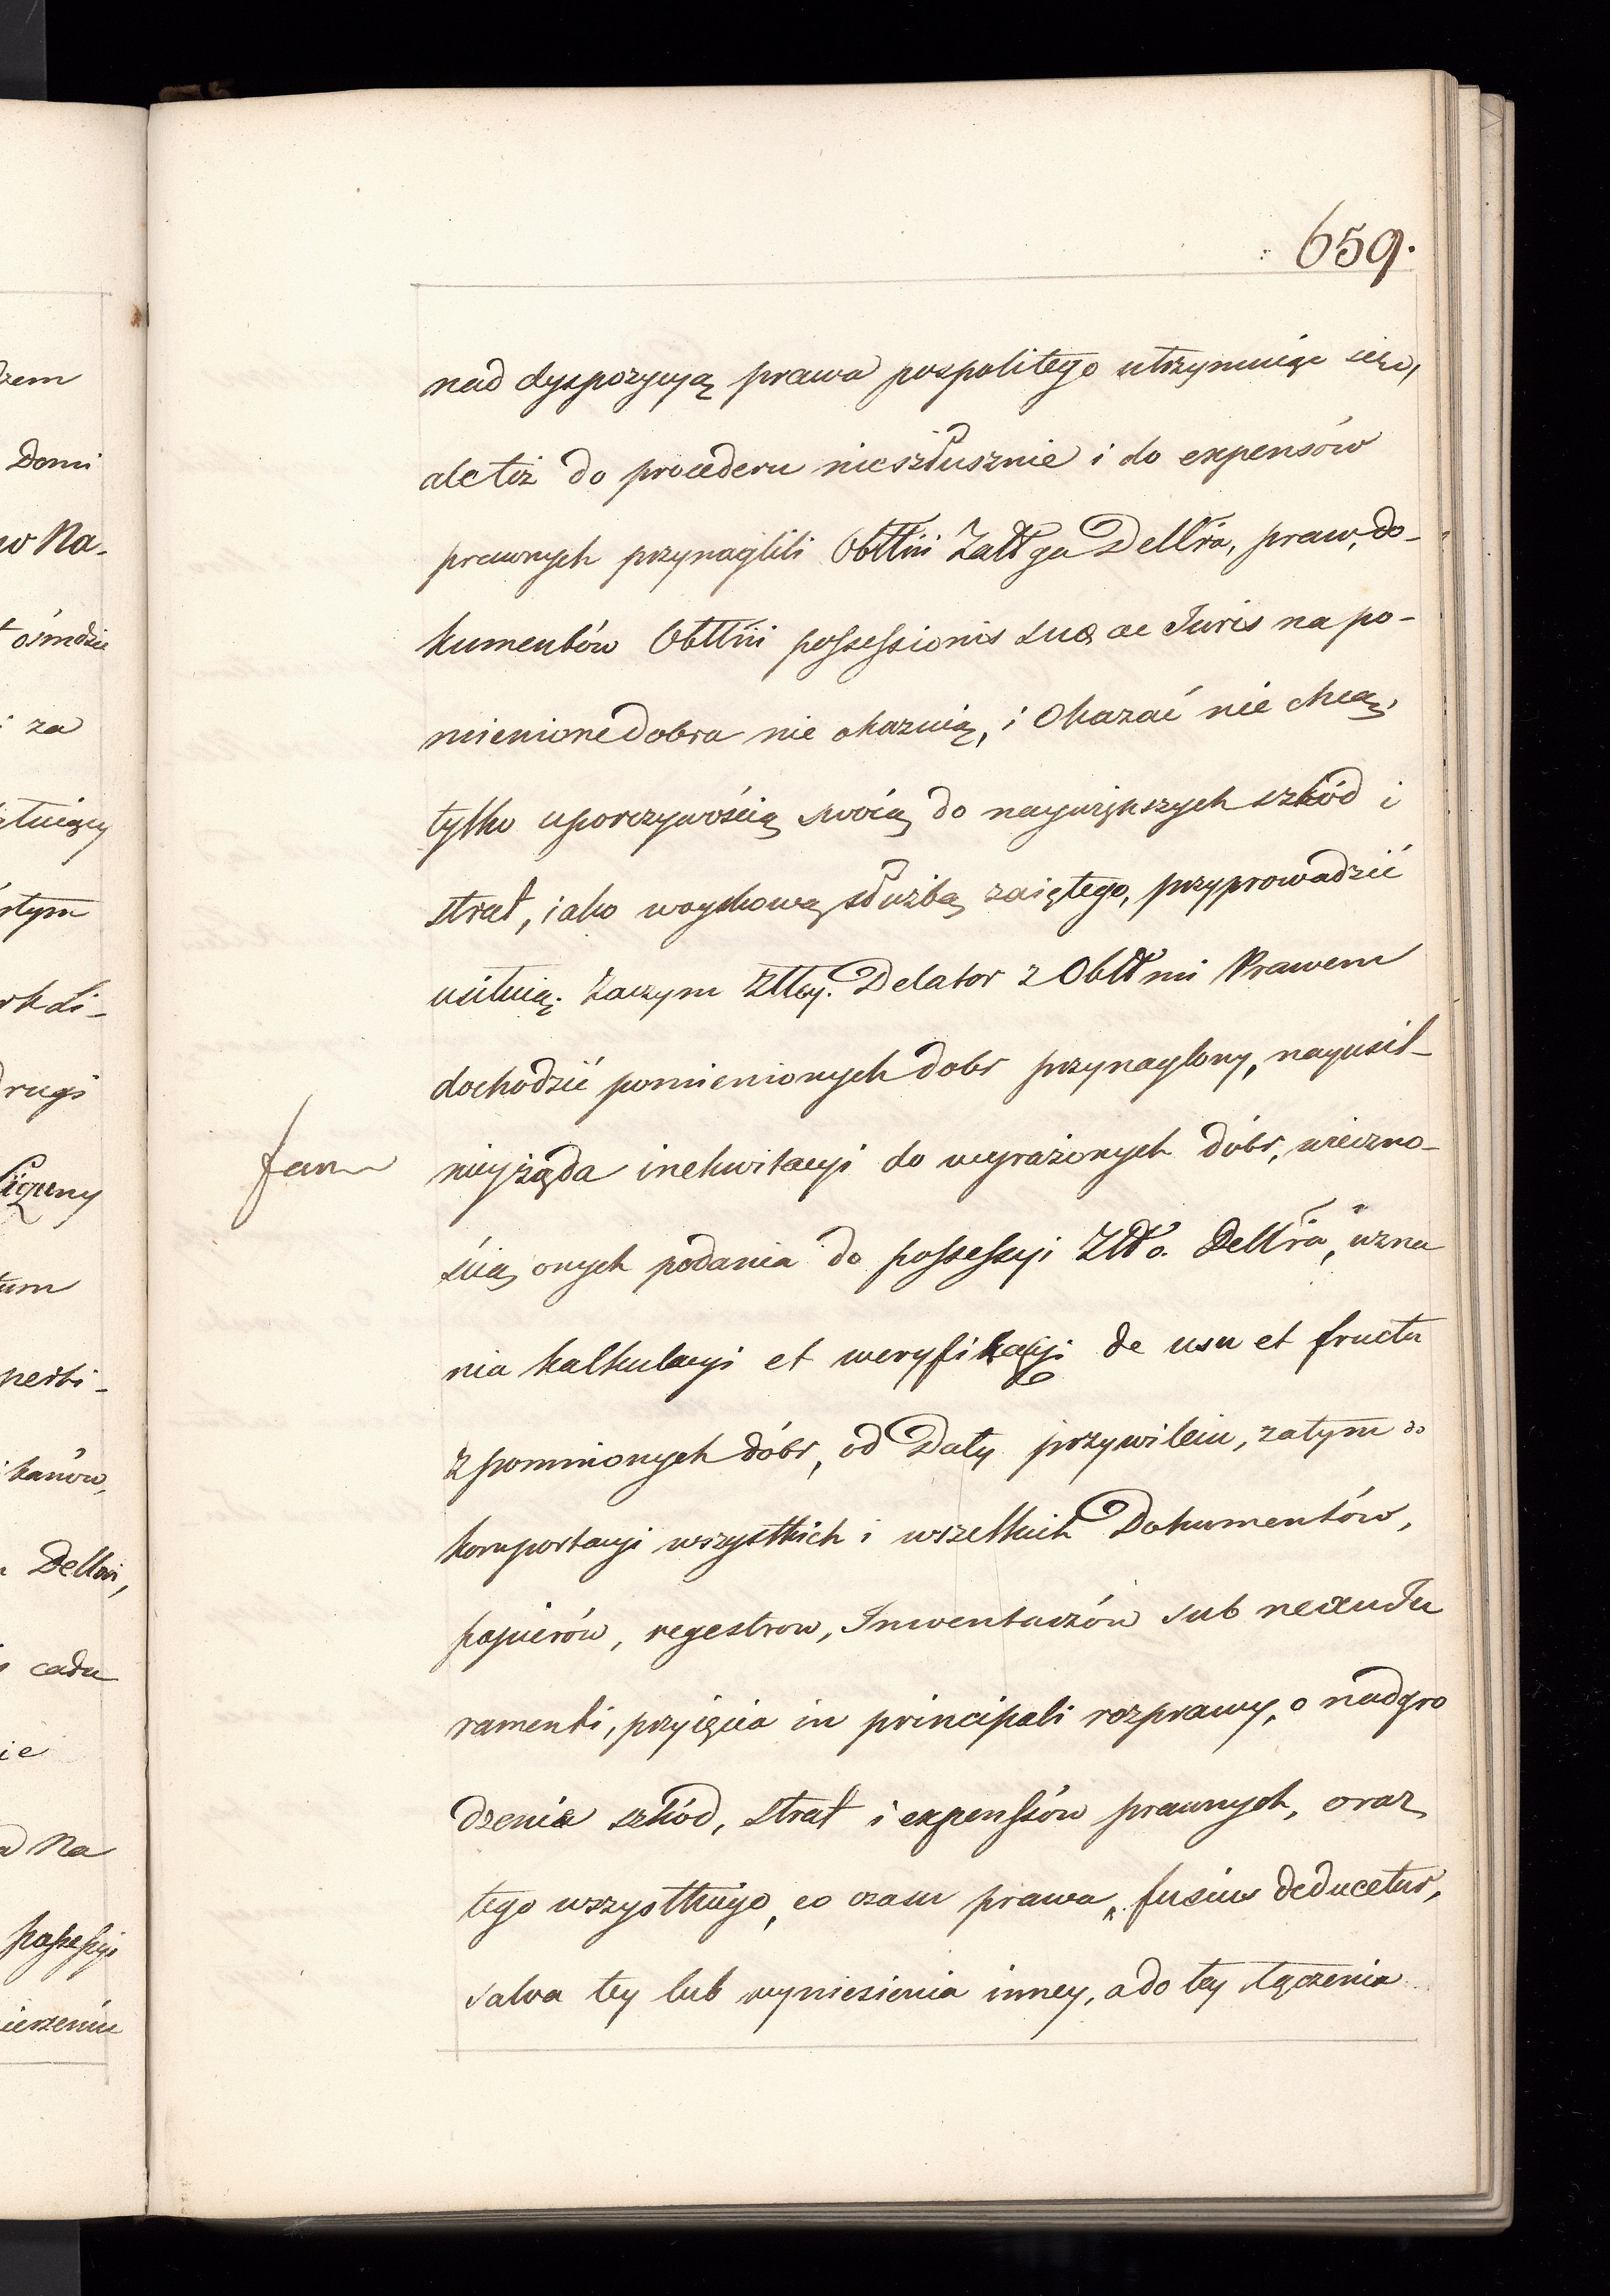 659.
nad dyspozycyą prawa pospolitego utrzymuiąc się,
ale też do procederu niesżłusznie i do expensów
prawnych przynaglili Obttńi Załł go Dellra, praw, do-
kumentów Obttńi possessionis suæ ac Juris na po-
mienione dobra nie okazuią, i Okazać nie chcą,
tylko uporczywością swoią do naywiększych szkód i
strat, iako woyskową służbą zaiętego, przyprowadzić
usiłuią. Zaczym Delator z Prawem
dochodzić pomienionych dobr przynaglony, nayusil-
niey żąda inekwitacyi do wyrażonych dóbr, wieczno-
ścią onych podania do possessyi Dellra, uzna
nia kalkulacyi et weryfikacyi de usu et fructu
z pomnionych dóbr, od Daty przywileiu, zatym do
komportacyi wszystkich i wszelkich Dokumentów,
papierów, regestrow, Inwentarzów sub nexu Ju
ramenti, przyięcia in principali rozprawy, o nadgro
dzenia szkód, strat i expensów prawnych, oraz
tego wszystkiego, co czasu prawa, fusius deducetur,
salva tey lub wyniesienia inney, a do tey łączenia
dzem
Domi
w Na-
ośmdzie
za
rstym
drugi
tum
Dellori,
cadu
ie
Na
possessyi